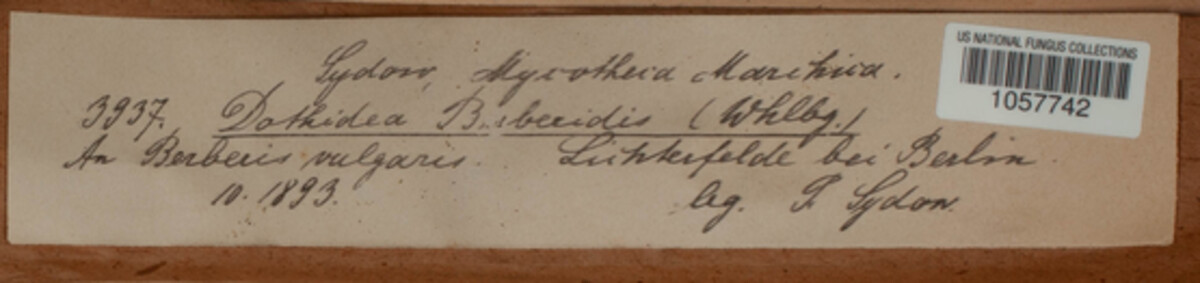 Sydow, Mycotheca Marchica.
3937. Dothidea Berberidis (Whlbg.)
An Berberis vulgaris. Lichterfelde bei Berlin
10. 1893. leg. P. Sydow.
US NATIONAL FUNGUS COLLECTIONS
1057742